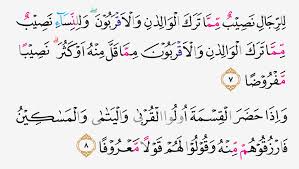 لِلرِّجَالِ نَصِيْبٌ مِّمَّا تَرَكَ الْوَالِدٰنِ وَالْاَقْرَبُوْنَۖ وَلِلنِّسَاۤءِ نَصِيْبٌ
مِّمَّا تَرَكَ الْوَالِدٰنِ وَالْاَقْرَبُوْنَ مِمَّا قَلَّ مِنْهُ اَوْ كَثُرَ ۗ نَصِيْبًا
مَّفْرُوْضًا ٧
وَاِذَا حَضَرَ الْقِسْمَةَ اُولُوا الْقُرْبٰى وَالْيَتٰمٰى وَالْمَسٰكِيْنُ
فَارْزُقُوْهُمْ مِّنْهُ وَقُوْلُوْا لَهُمْ قَوْلًا مَّعْرُوْفًا ٨